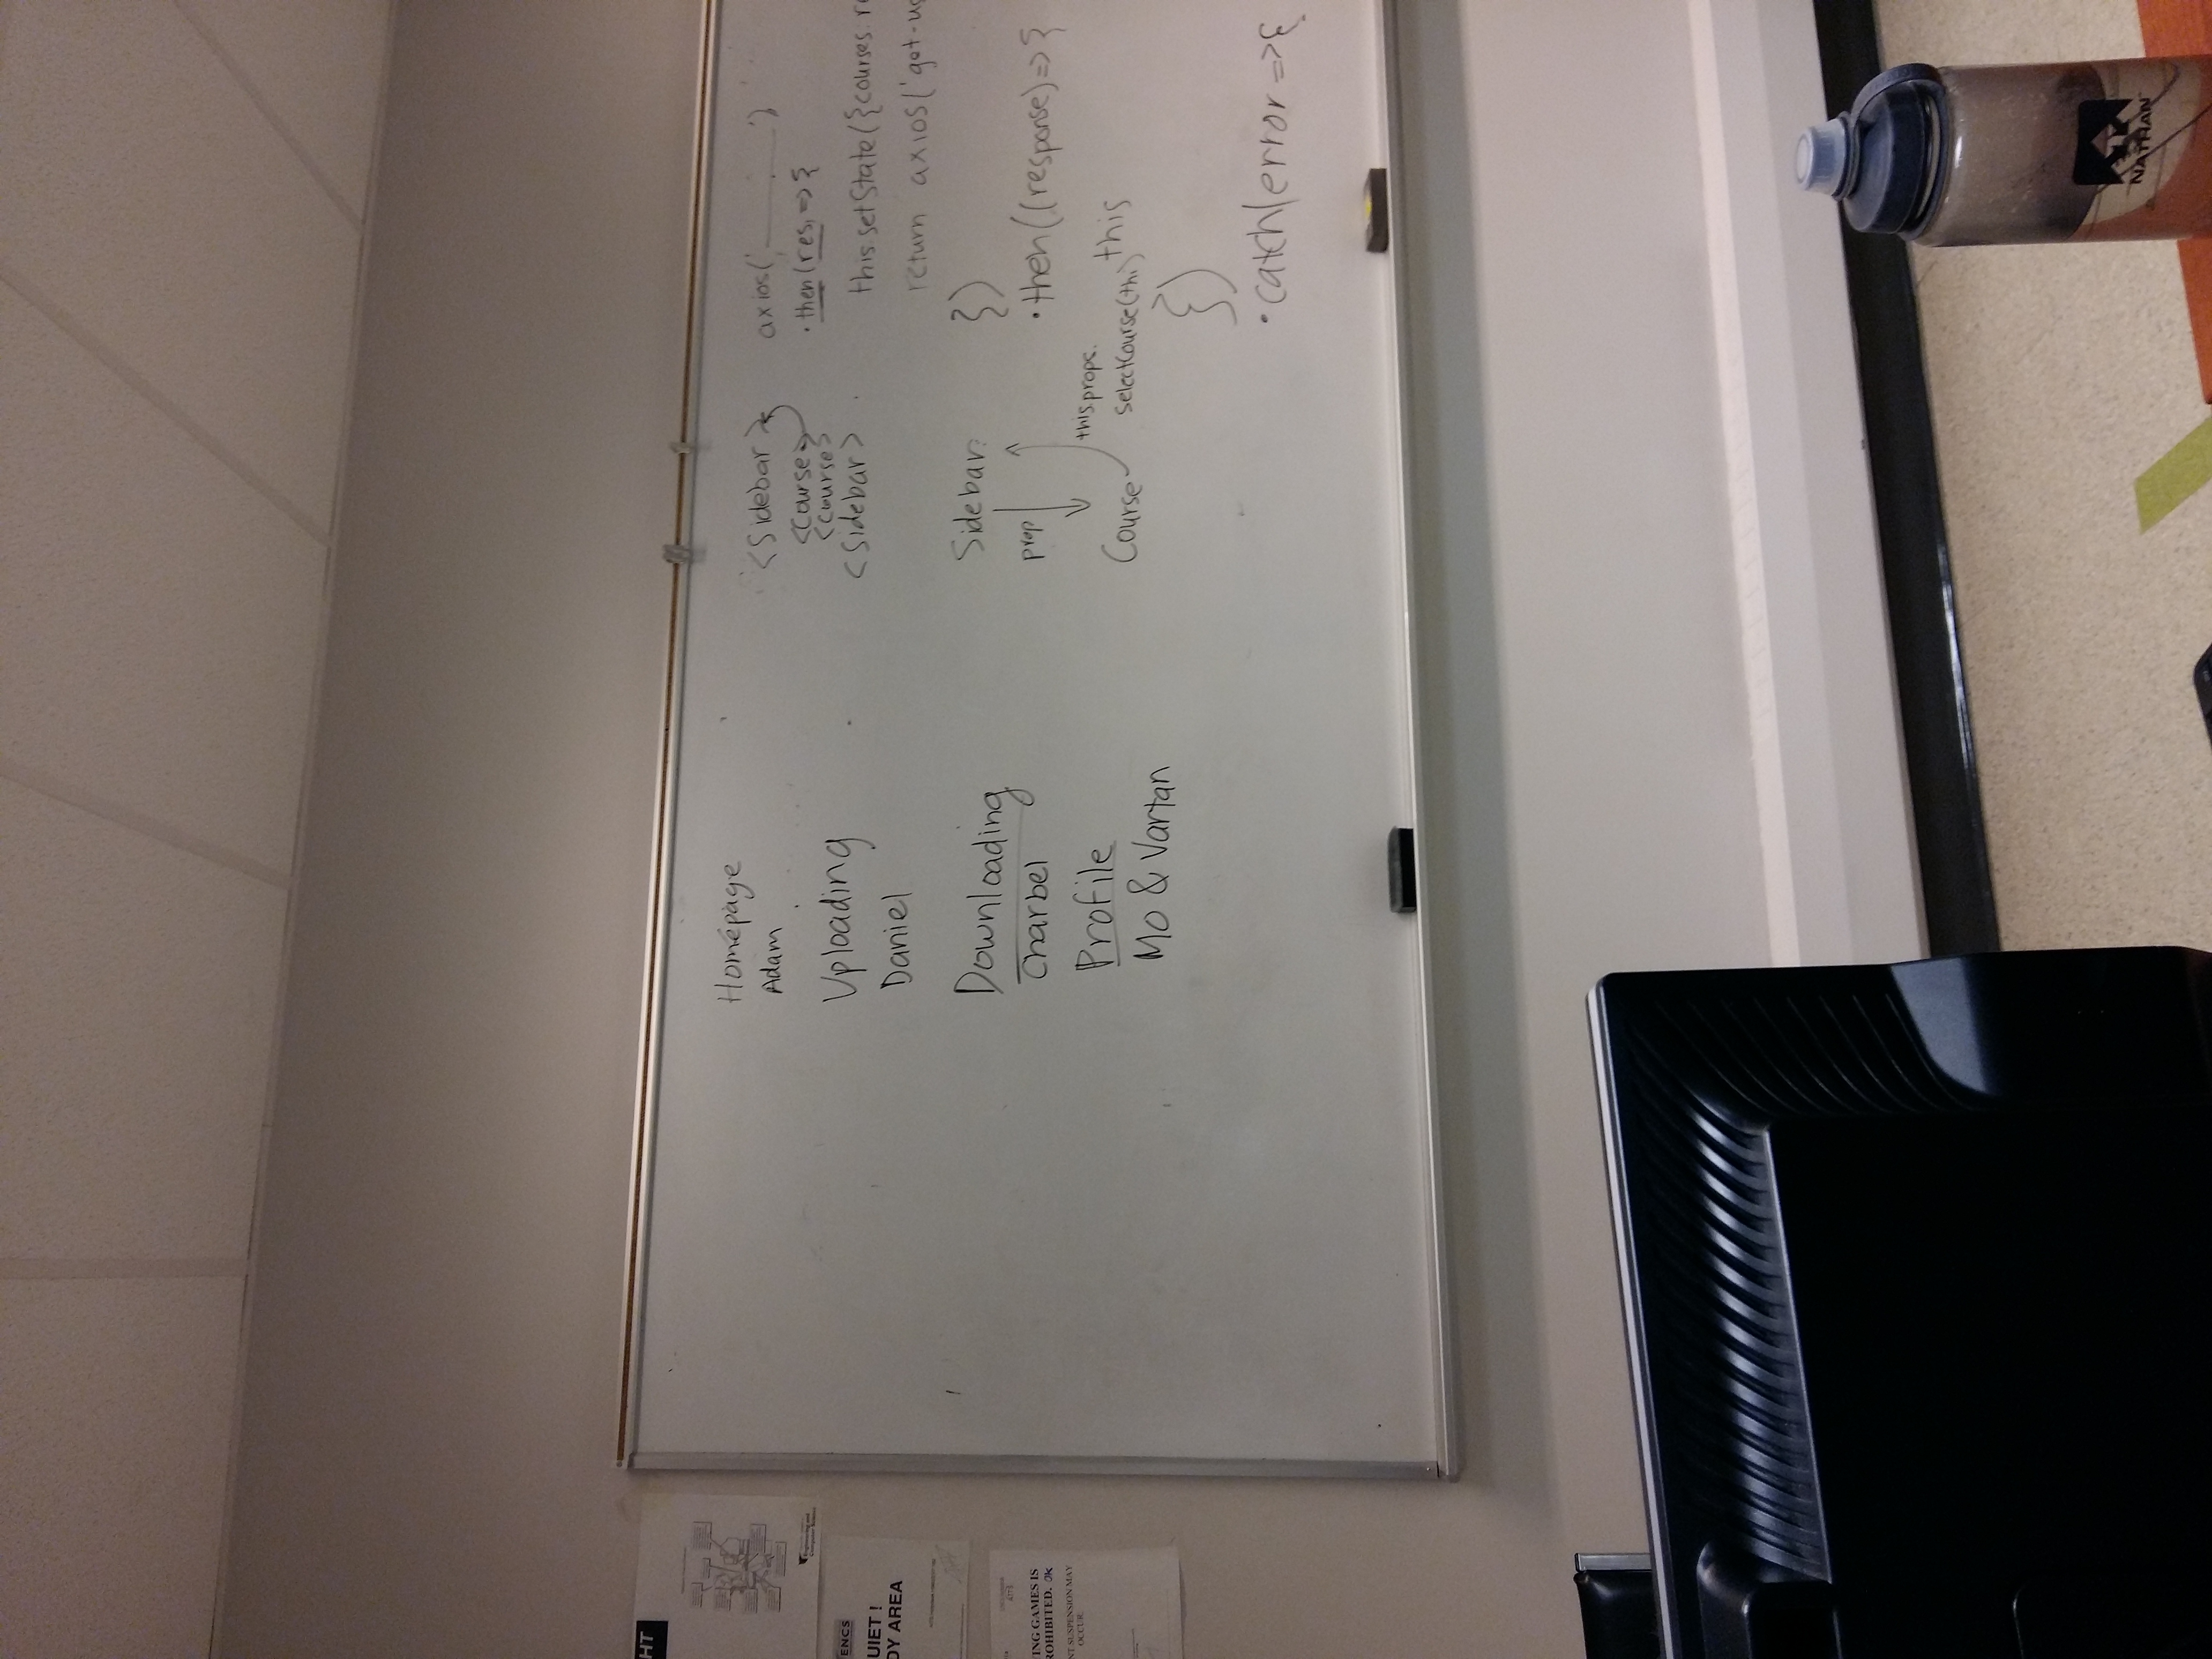 HT
Engineering and
Computer Science
ENCS
UIET !
DY AREA
ING GAMES IS
ROHIBITED. OK
NT SUSPENSION MAY
OCCUR.
Homepage
Adam
Uploading
Daniel
Downloading
Charbel
Profile
Mo & Vartan
<Sidebar>
<Course>
<Course>
<Sidebar>
Sidebar
prop
this.props.
Course
selectCourse(thi)
axios('________')
.then(res => {
this.setState({courses: re
return axios('get-us
})
.then((response) => {
this
})
.catch(error => {
NATHAN